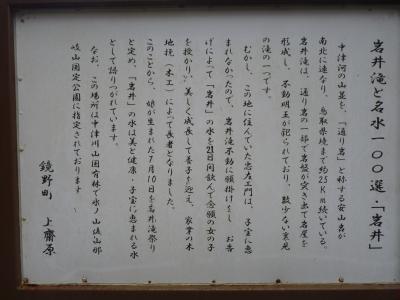 岩井滝と名水一〇〇選・「岩井」
中津河の山並を、「通り岩」と称する安山岩が
南北に連なり、鳥取県境まで約2.5Km続いている。
岩井滝は、通り岩の一部で岩盤が突き出て岩屋を
形成し、不動明王が祀られており、数少ない裏見
の滝の一つです。
むかし、この地に住んでいた忠左エ門は、子宝に恵
まれなかったので、岩井滝不動に願掛けをし、お告
げによって「岩井」の水を21日間飲んで念願の女の子
を授かり、美しく成長して養子を迎え、家業の木
地挽（木工）によって長者となりました。
このことから、娘が生まれた7月10日を岩井滝祭り
と定め、「岩井」の水は美と健康・子宝に恵まれる水
として語りつがれています。
なお、この場所は中津川山国有林で氷ノ山後山那
岐山国定公園に指定されております
鏡野町 上齋原